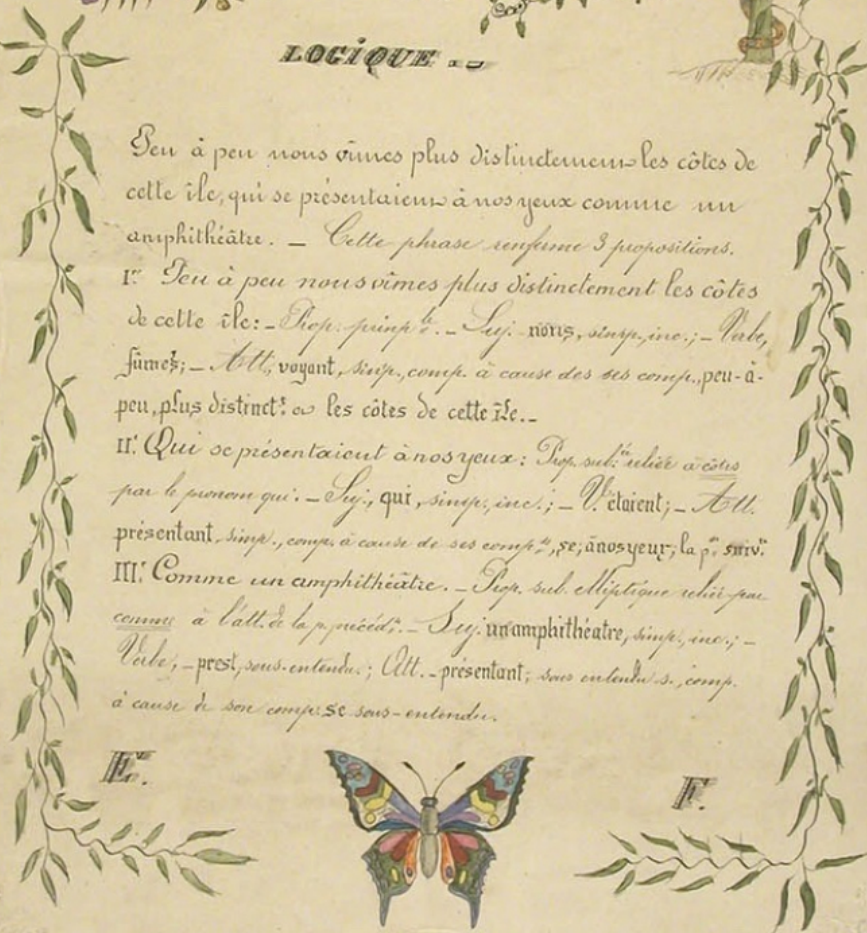 LOGIQUE --
Peu à peu nous vîmes plus distinctement les côtes de
cette île, qui se présentaient à nos yeux comme un
amphithéâtre. — Cette phrase renferme 3 propositions.
I.re Peu à peu nous vîmes plus distinctement les côtes
de cette île: — Prop. prinp.le. — Suj. nous, simp., inc.; — Verbe,
fûmes; — Att; voyant, simp., comp. à cause des ses comp., peu-à-
peu, plus distinct.t et les côtes de cette île. —
II.e Qui se présentaient à nos yeux: Prop. sub.ée reliée à côtes
par le pronom qui. — Suj., qui, simp., inc.; — V. étaient; — Att.
présentant, simp., comp. à cause de ses comp.ts, se; à nos yeux; la p.on suiv.te
III.e Comme un amphithéâtre. — Prop. sub. elliptique reliée par
comme à l'att. de la p. précéd.te — Suj. un amphithéatre, simp., inc.; —
Verbe, — sous-entendu.; Att. — présentant; sous entendu s., comp.
à cause de son comp: se sous-entendu.
E. F.